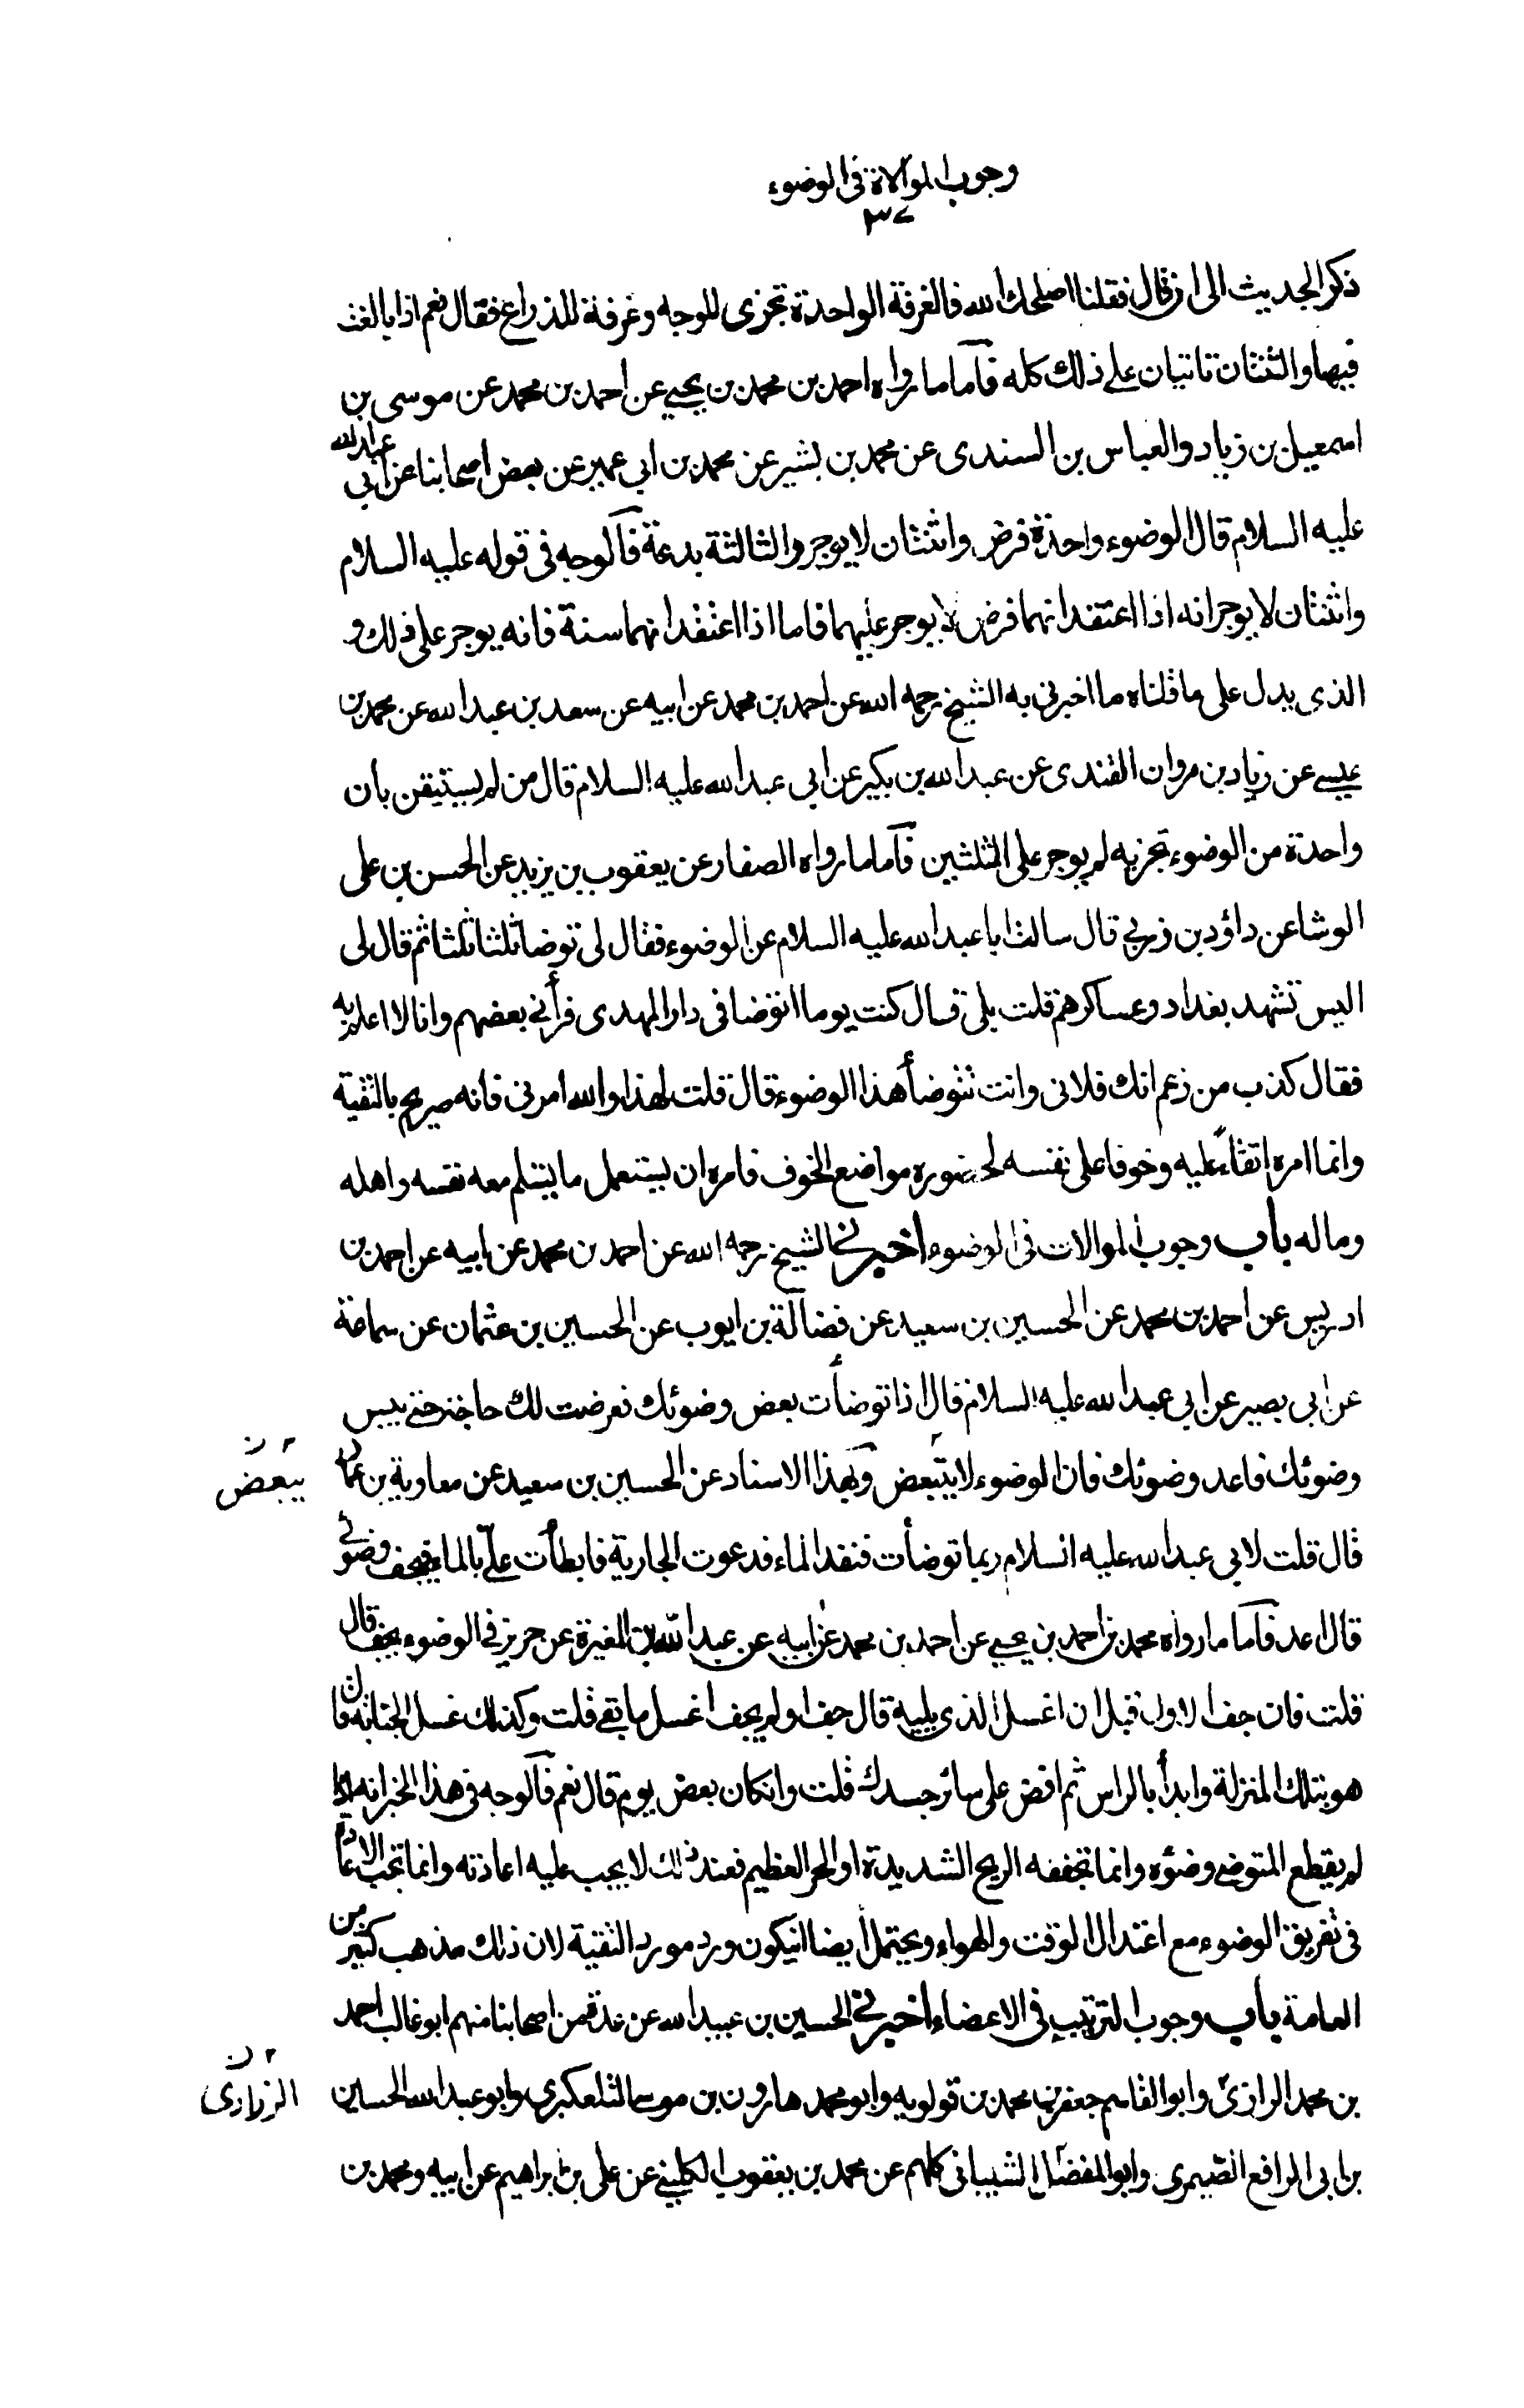 وجوب الموالاة في الوضوء
٣٧
ذكر الحديث الى ان قال فقلنا اصلحك الله فالغرفة الواحدة تجزى للوجه وغرفة للذراع فقال نعم اذا بالغت
فيها والثنتان تاتيان على ذلك كله فاما ما رواه احمد بن محمد بن يحيى عن احمد بن محمد عن موسى بن
اسمعيل بن زياد والعباس بن السندى عن محمد بن بشير عن محمد بن ابي عمير عن بعض اصحابنا عن ابي عبد الله
عليه السلام قال الوضوء واحدة فرض واثنتان لا يوجر والثالثة بدعة فالوجه في قوله عليه السلام
واثنتان لا يوجر انه اذا اعتقد انهما فرض لا يوجر عليهما فاما اذا اعتقد انهما سنة فانه يوجر على ذلك و
الذى يدل على ما قلناه ما اخبرنى به الشيخ رحمه الله عن احمد بن محمد عن ابيه عن سعد بن عبد الله عن محمد بن
عيسى عن زياد بن مروان القندى عن عبد الله بن بكير عن ابى عبد الله عليه السلام قال من لم يستيقن بأن
واحدة من الوضوء تجزيه لم يوجر على الثلثين فاما ما رواه الصفار عن يعقوب بن يزيد عن الحسن بن على
الوشا عن داؤد بن زربى قال سالت ابا عبد الله عليه السلام عن الوضوء فقال لى توضا ثلثا ثلثا ثم قال لى
اليس تشهد بغداد وعساكرهم قلت بلى قال كنت يوما اتوضا فى دار المهدى فرأنى بعضهم وانا لا اعلم به
فقال كذب من زعم انك فلانى وانت تتوضأ هذا الوضوء قال قلت لهذا والله امرنى فانه صريح بالتقية
وانما امره اتقاء عليه وخوفا على نفسه لحضوره مواضع الخوف فامره ان يستعمل ما يتسلم معه نفسه واهله
وماله باب وجوب الموالات فى الوضوء اخبرنى الشيخ رحمه الله عن احمد بن محمد عن ابيه عن احمد بن
ادريس عن احمد بن محمد عن الحسين بن سعيد عن فضالة بن ايوب عن الحسين بن عثمان عن سماعة
عن ابى بصير عن ابى عبد الله عليه السلام قال اذا توضأت بعض وضوئك فعرضت لك حاجة حتى يبس
وضوئك فاعد وضوئك فان الوضوء لا يتبعض وبهذا الاسناد عن الحسين بن سعيد عن معاوية بن عمار
يبعض ن
قال قلت لابى عبد الله عليه السلام ربما توضأت فنفد الماء فدعوت الجارية فابطأت علىّ بالماء فيجف وضوئى
قال اعد فاما ما رواه محمد بن احمد بن يحيى عن احمد بن محمد عن ابيه عن عبد الله بن المغيرة عن حريز فى الوضوء يجف قال
قلت فان جف الاول قبل ان اغسل الذى يليه قال جف او لم يجف اغسل ما بقى قلت وكذلك غسل الجنابة قال
هو بتلك المنزلة وابدأ بالراس ثم افض على سائر جسدك قلت وانكان بعض يوم قال نعم فالوجه فى هذا الخبر انه اذا
لم يقطع المتوضى وضوئه وانما تجففه الريح الشديدة او الحر العظيم فعند ذلك لا يجب عليه اعادته وانما تجب الاعادة
فى تفريق الوضوء مع اعتدال الوقت والهواء ويحتمل أيضا انيكون ورد مورد التقية لان ذلك مذهب كثير من
العامة باب وجوب الترتيب فى الاعضاء اخبرنى الحسين بن عبيد الله عن عدة من اصحابنا منهم ابو غالب احمد
بن محمد الرازى وابو القاسم جعفر بن محمد بن قولويه وابو محمد هارون بن موسى التلعكبرى وابو عبد الله الحسين
الزرارى ن
بن ابى الرافع الصيمرى وابو المفضل الشيبانى كلهم عن محمد بن يعقوب الكلينى عن على بن ابراهيم عن ابيه ومحمد بن